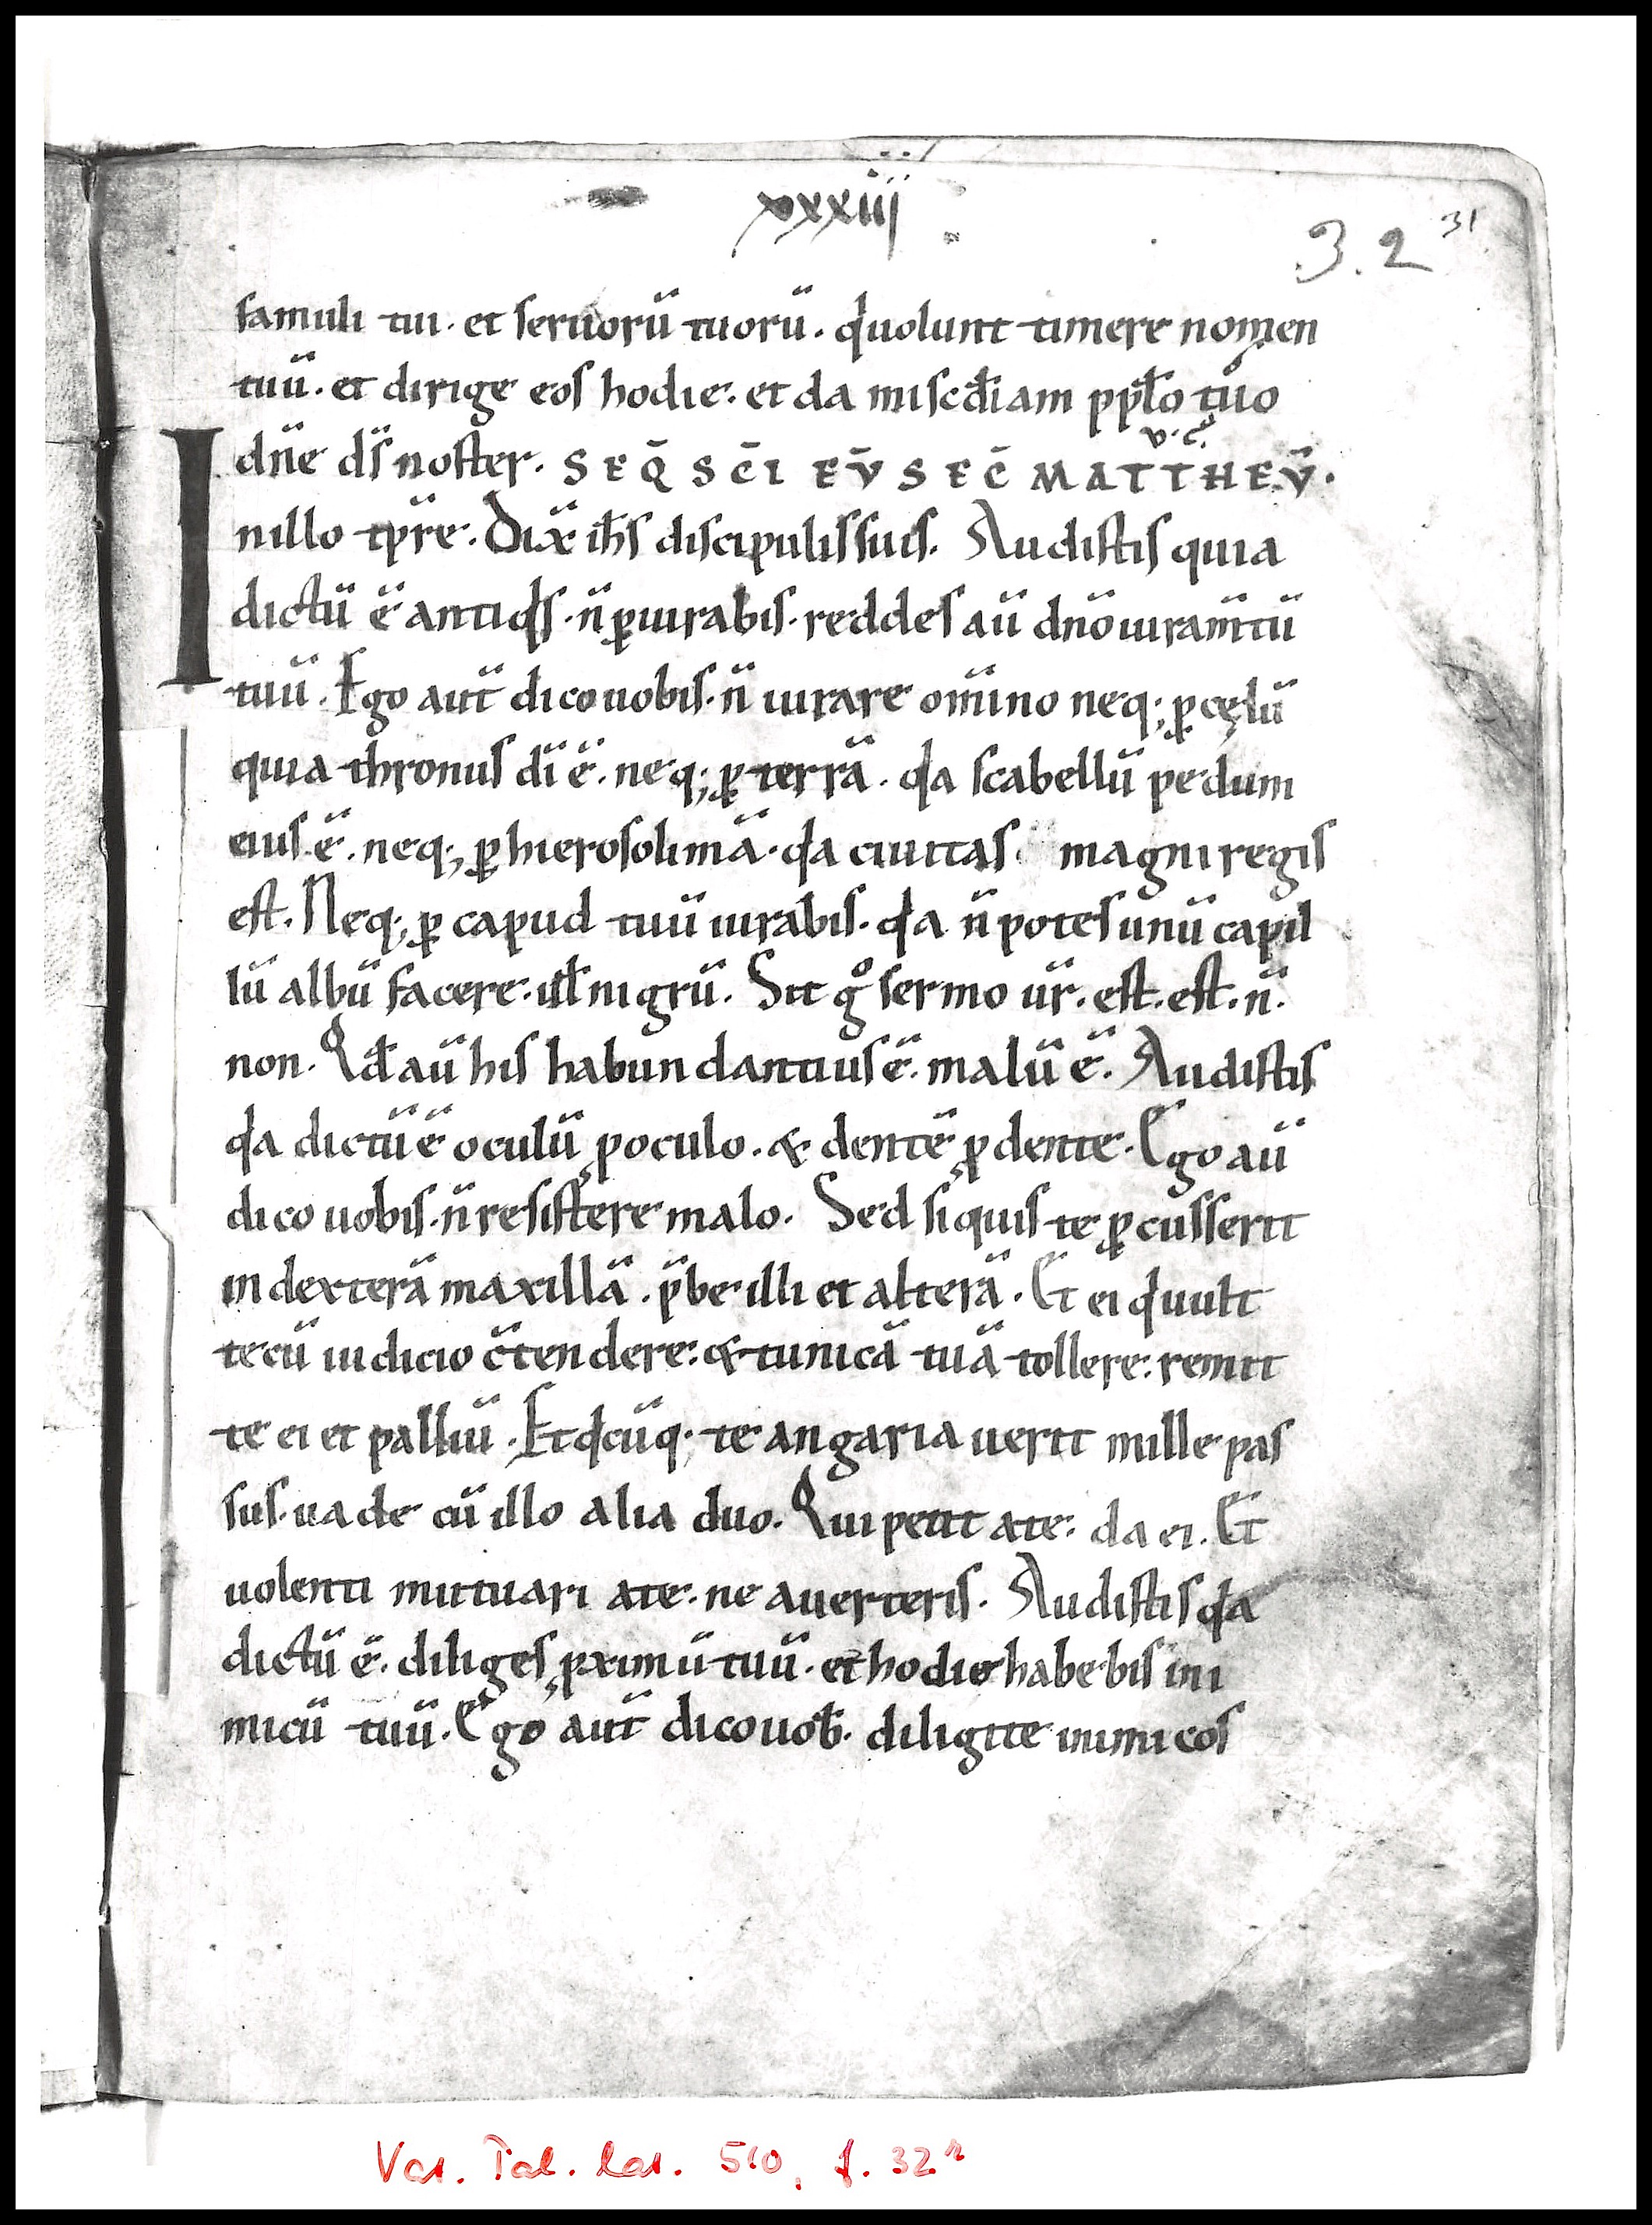 xxxiij
3.2 31
famuli tui. et seruorū tuorū. q̇uolunt timere nomen
tuū. et dirige eos hodie. et da misc̄diam pp̄lo tuo
v. c̊.
dn̄e ds̄ noster. SEQ̄ SC̄I EV̄ SEC̄ MATTHEV̄.
Inillo tp̄re. Dix̄ ih̄s discipulis suis. Audistis quia
dictū ē antiqs. n̄ ꝑiurabis. reddes aū dn̄o iuram̄tū
tuū. Ego aut̄ dico uobis. n̄ iurare om̄ino neq; ꝑ cęlū
quia thronus dī ē. neq; ꝑ terrā. qa scabellū pedum
eius ē. neq; ꝑ hierosolimā. qa ciuitas magni regis
est. Neq; ꝑ capud tuū iurabis. qa n̄ potes unū capil
lū albū facere. ul̄ nigrū. Sit g̊ sermo ur̄. est. est. n̄.
non. Qd̄ aū his habundantius ē. malū ē. Audistis
qa dictū ē oculū ꝓoculo. & dentē ꝓ dente. Ego aū
dico uobis. n̄ resistere malo. Sed siquis te ꝑcusserit
in dexterā maxillā. p̄be illi et alterā. Et ei q̇uult
tecū iudicio c̄tendere: & tunicā tuā tollere: remit
te ei et palliū. Et qcūq; te angaria uerit mille pas
sus. uade cū illo alia duo. Qui petit ate: da ei. Et
uolenti mutuari ate. ne auerteris. Audistis qa
dictū ē. diliges ꝓximū tuū. et hodio habebis ini
micū tuū. Ego aut̄ dico uob̄. diligite inimicos
Vat. Pal. lat. 510, f. 32r